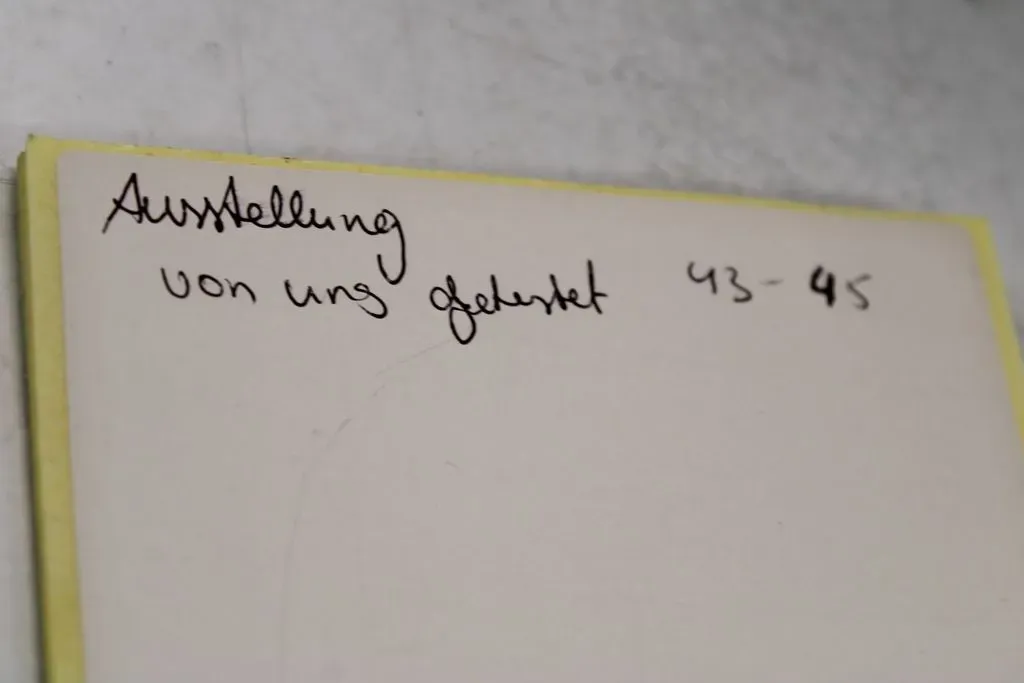 Ausstellung
von uns getestet 43-45